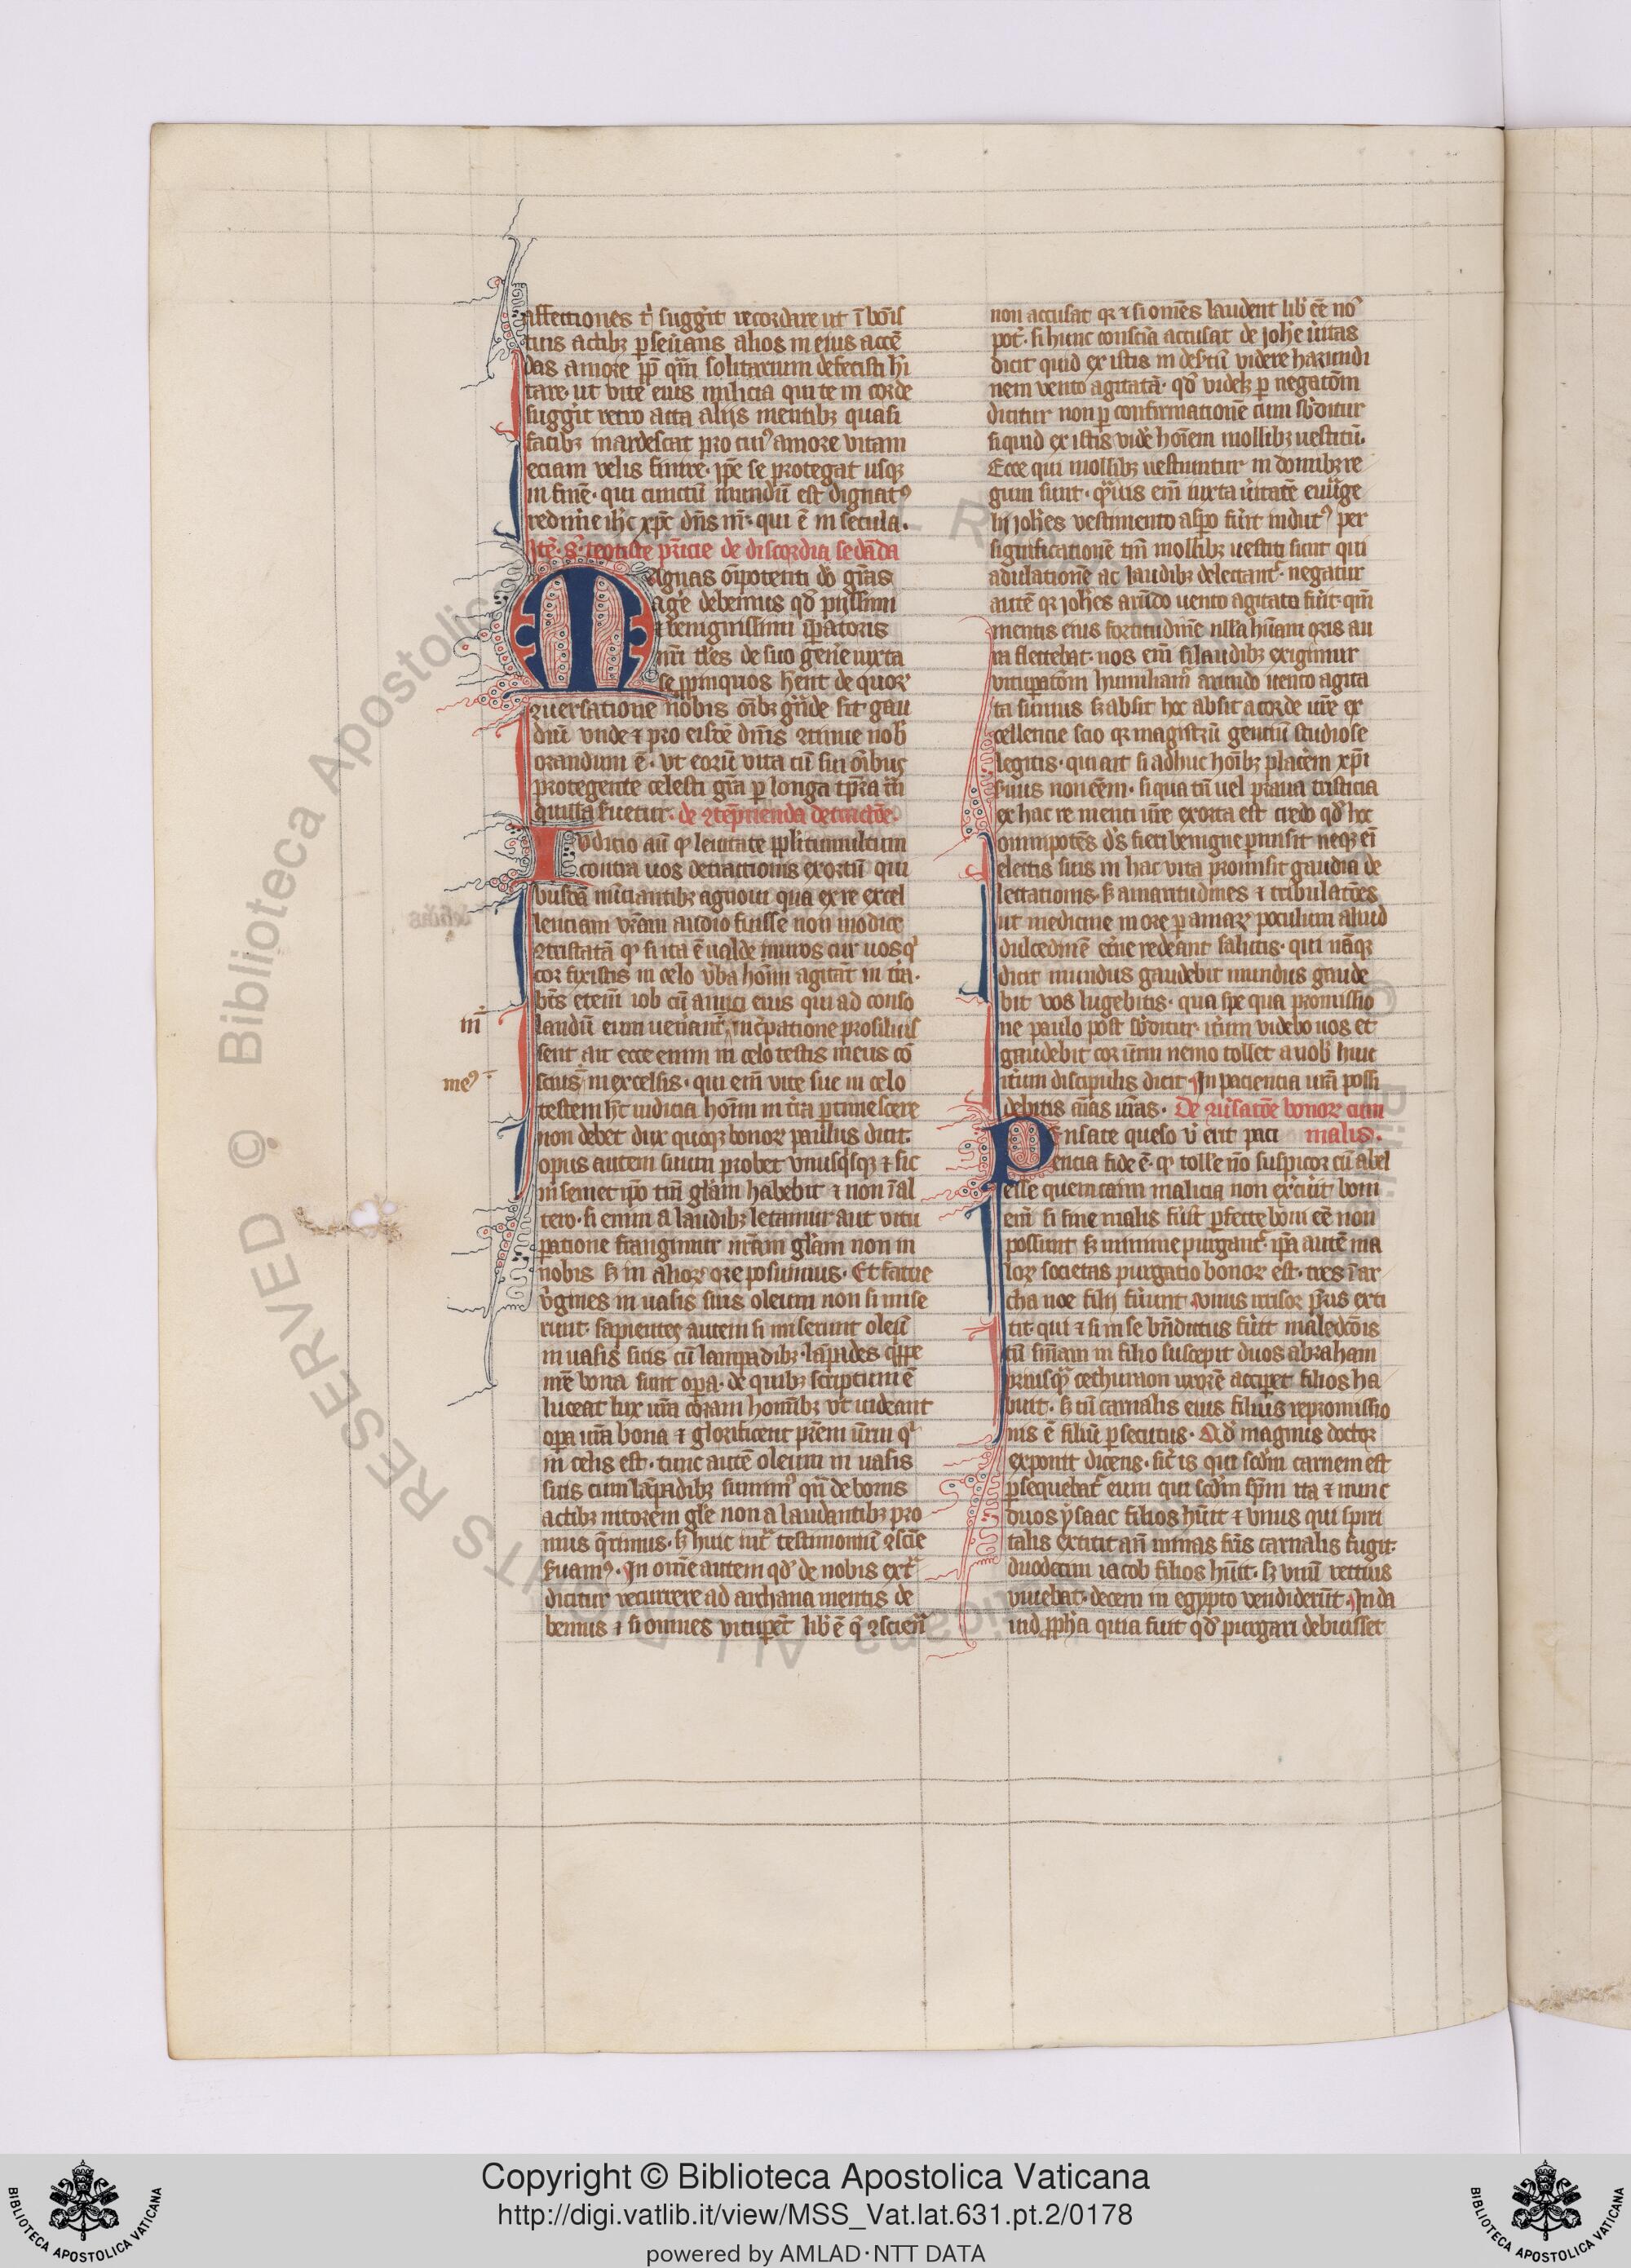 affectiones t͛ sugg̃it recordare ut ĩ boĩs
tuis actibꝫ ꝑseũans alios in eius accẽ
das amore ꝓp̃ qm̃ solitarium defecisti hĩ
tare ut vite eius milicia qui te in corde
suggit retro acta aliis mentibꝫ quasi
facibꝫ mardescat pro cuiꝰ amore vitam
eciam velis finire. ip̃e se protegat usqꝫ
in finẽ. qui cunctũ mundũ est dignatꝰ
redim̃e ih̃c xp̃c dñs nr̃. qui ẽ in secula.
Itẽ. g̃. teotiste pr̃icie de discordia sedãda
Magnas oĩpotenti dõ gr̃as
ag̃e debemus qd̃ piissimi
⁊ benignissimi ip̃atoris
nr̃i tl̃es de suo gen̾e iuxta
se ꝓpinquos hẽnt de quoꝝ
ꝯuersatione nobis oĩbꝫ gñde sit gau
diũ vnde ⁊ pro eisdẽ dñis ꝯtinue nob̾
orandum ẽ. vt eorũ vita cũ sui oĩbus
protegente celesti gr̃a ꝑ longa tp̃ra
quilla suetur. de ꝯtẽpnenda detractõe.
Iudicio aũ ꝙ leuitate ꝓpl̾i tumultum
contra uos detractionis exortũ qui
busdã nũciantibꝫ agnoui qua ex re excel
lenciam vr̃am audio fuisse non modice
ꝯtristatã ꝙ si ita ẽ ualde miros cur uos q̾
cor fixistis in celo v̾ba hoĩm agitãt in tr̃a.
bt̃s etem̃ iob cũ amici eius qui ad conso
landũ eum ueñant̃, in ĩc̾patione prosiluis
sent ait ecce enim in celo testis meus cõ
scius in excelsis. qui em̃ vite sue in celo
testem ht̃ iudicia hoĩm in tr̃a ꝑtimescere
non debet dux quoqꝫ bonoꝝ paulus dicit.
opus autem suum probet vnusq̾sqꝫ ⁊ sic
in semet ip̃o tm̃ gl̃am habebit ⁊ non ĩ al
tero. si enim a laudibꝫ letamur aut vitu
patione frangimur nr̃am gl̃am non in
nobis sꝫ in alioꝝ ore posuimus. Et fatue
v̾gines in uasis suis oleum non si mise
runt. sapientes autem si miserunt oleũ
in uasis suis cũ lampadibꝫ. lãpades q̾ppe
nr̃e bona sunt oꝑa. de quibꝫ scriptum ẽ
luceat lux ur̃a coram homĩbꝫ vt uideant
oꝑa ur̃a bona ⁊ glorificent pr̃em ur̃m q̾
in celis est. tunc autẽ oleum in uasis
suis cum lãpadibꝫ sumimꝰ qñ de bonis
actibꝫ nitorem gl̃e non a laudantibꝫ pro
mus q̃rimus. sꝫ huic int̾ testimoniũ ꝯscie
suamꝰ. In om̃e autem qd̾ de nobis ext̾
dicitur recurrere ad archana mentis de
bemus ⁊ si omnes vitupet̃ lib̾ ẽ q̾ ꝯscien̾
m̃
meꝰ
non accusat qꝫ ⁊ si om̃es laudent lib̾ ẽe nõ
pot̃. si hunc consciã accusat de joh̃e ũitas
dicit quid ex istis in desertũ videre harundi
nem vento agitatã. qd̃ videlꝫ ꝑ negatõm
dicitur non ꝑ confirmationẽ cum sb̾ditur
si quid ex istis vide̾ hoĩem mollibꝫ uestitũ.
Ecce qui mollibꝫ uestiuntur in domibꝫ re
gum sunt. q̃uis em̃ iuxta ũitatẽ euãge
lii joh̃es vestimento asꝑo fũit indutꝰ per
significationẽ tm̃ mollibꝫ uestiti sunt qui
adulationẽ ac laudibꝫ delectant̾. negatur
autẽ qꝫ joh̃es arũdo uento agitata fũit. qm̃
mentis eius fortitudinẽ ulla hũani oris au
ra flectebat. nos em̃ si laudibꝫ erigimur
vitupatõm humiliam̾ arundo uento agita
ta sumus sꝫ absit hoc absit a corde ur̃e ex
cellencie scio qꝫ magistrũ gentium studiose
legitis. qui ait si adhuc hoĩbꝫ placẽm xp̃i
suus non eẽm. si qua tñ uel praua tristicia
ex hac re menti ur̃e exorta est credo qd̃ hoc
omnipotẽs ds̃ fieri benigne ꝑmisit neqꝫ em̃
electis suis in hac vita promisit gaudia de
lectationis. sꝫ amaritudines ⁊ tribulatões
ut medicine more ꝑ amaꝝ poculum aliud
dulcedinẽ et̃ne redeant salutis. qui nãqꝫ
dicit mundus gaudebit mundus gaude
bit vos lugebitis. qua spe qua promissio
ne paulo post sb̾ditur. itum videbo uos et
gaudebit cor ur̃m nemo tollet a uob̾ hinc
itum discipulis dicit. In paciencia ur̃a possi
debitis ãias ur̃as. De ꝯũsatõe bonoꝝ cum
Pensate queso u̾ erit paci malis.
encia si de ẽ. ꝙ tolle nõ suspicor cũ abel
esse quem caim malicia non ex̾cũit, boni
em̃ si sine malis fũit ꝑfecte boni ẽe non
possunt sꝫ minime purgant̾. ip̃a autẽ ma
loꝝ societas purgatio bonoꝝ est. tres ĩ ar
cha noe filii fũunt. vnus irrisor pr̃is exti
tit. qui ⁊ si in se bñdictus fũit maledcõis
tñ sñiam in filio suscepit duos abraham
priusq̃ cethuraon uxorẽ acciꝑet filios ha
buit. sꝫ tñ carnalis eius filius repromissio
nis ẽ filiũ ꝑsecutus. Qd̾ magnus doctor
exponit dicens. sic̾ is qui scd̾m carnem est
ꝑsequebat̾ eum qui scd̾m spm̃ ita ⁊ nunc
duos ysaac filios hũit ⁊ vnus qui spiri
talis extitit añ minas fr̃is carnalis fugit.
duodecim iacob filios hũit. sꝫ vnũ rectius
viuebat. decem in egypto vendiderũt. In da
uid ꝓph̃a quia fuit qd̾ purgari debuisset
Copyright © Biblioteca Apostolica Vaticana
http://digi.vatlib.it/view/MSS_Vat.lat.631.pt.2/0178
powered by AMLAD·NTT DATA